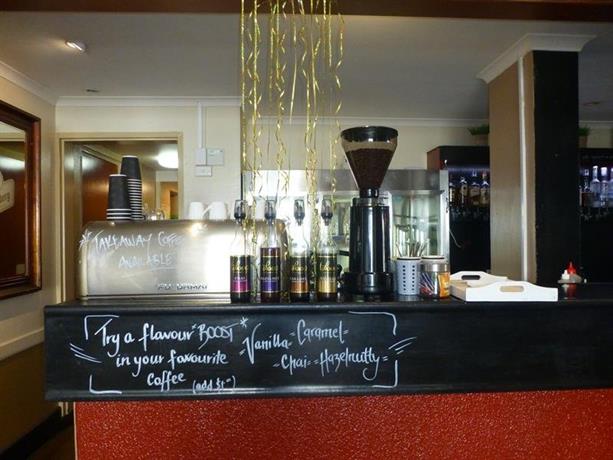 TAKEAWAY COFFEE
AVAILABLE
Try a flavour "BOOST"
in your favourite
coffee (add $1-)
-Vanilla- Caramel-
-Chai- -Hazelnutty-